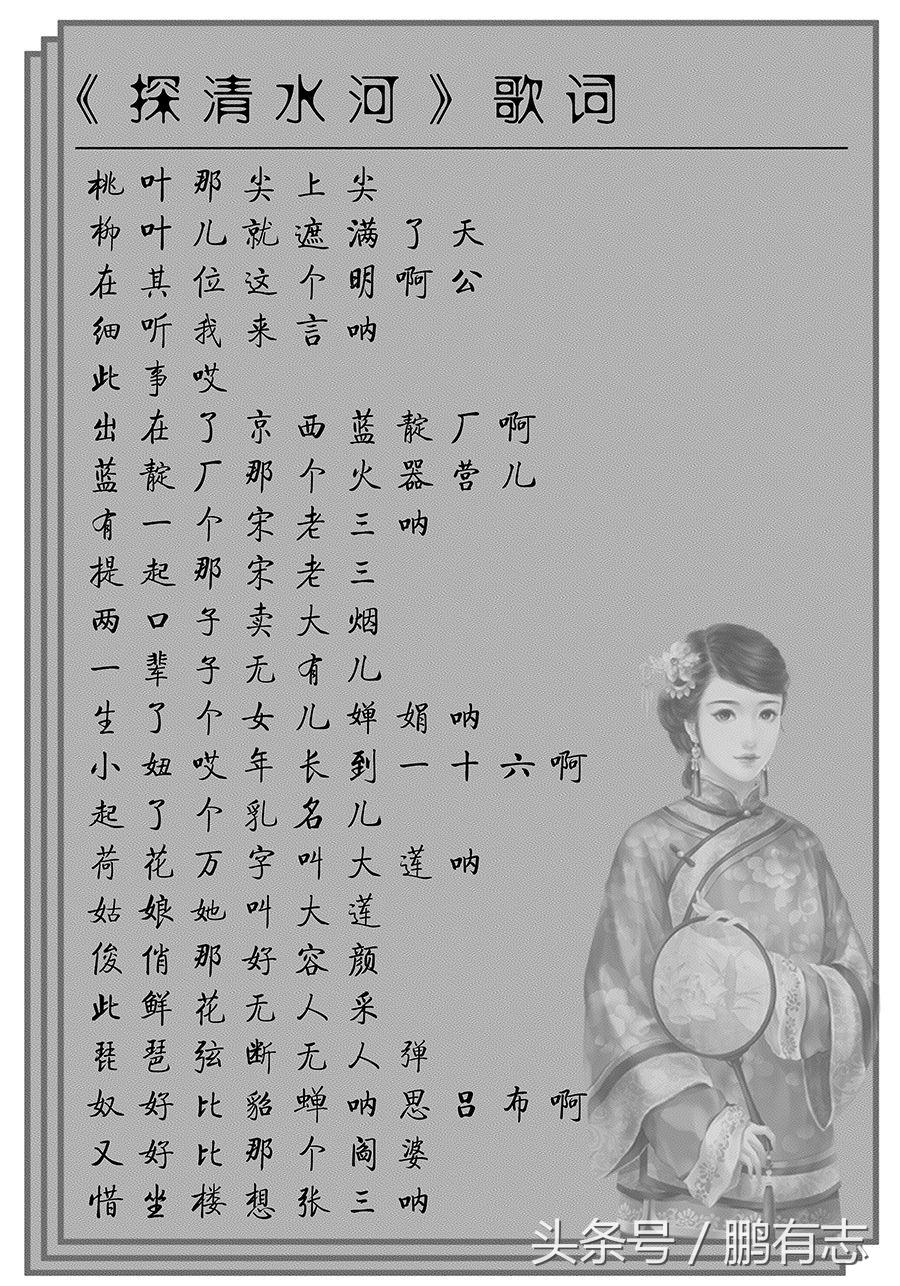 《探清水河》歌词
桃叶那尖上尖
柳叶儿就遮满了天
在其位这个明啊公
细听我来言呐
此事哎
出在了京西蓝靛厂啊
蓝靛厂那个火器营儿
有一个宋老三呐
提起那宋老三
两口子卖大烟
一辈子无有儿
生了个女儿婵娟呐
小妞哎年长到一十六啊
起了个乳名儿
荷花万字叫大莲呐
姑娘她叫大莲
俊俏那好容颜
此鲜花无人采
琵琶弦断无人弹
奴好比貂蝉呐思吕布啊
又好比那个阎婆
惜坐楼想张三呐
头条号 / 鹏有志